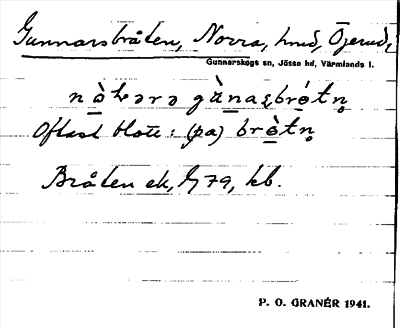 Gunnarsbråten, Norra, hmd, Öjerud,
Gunnarskogs sn, Jösse hd, Värmlands l.
nò̱hərə gà̱nasbrò̱tn̥
Oftast blott: (pa) brò̱tn̥
Bråten ek, kb.
P. O. GRANÉR 1941.